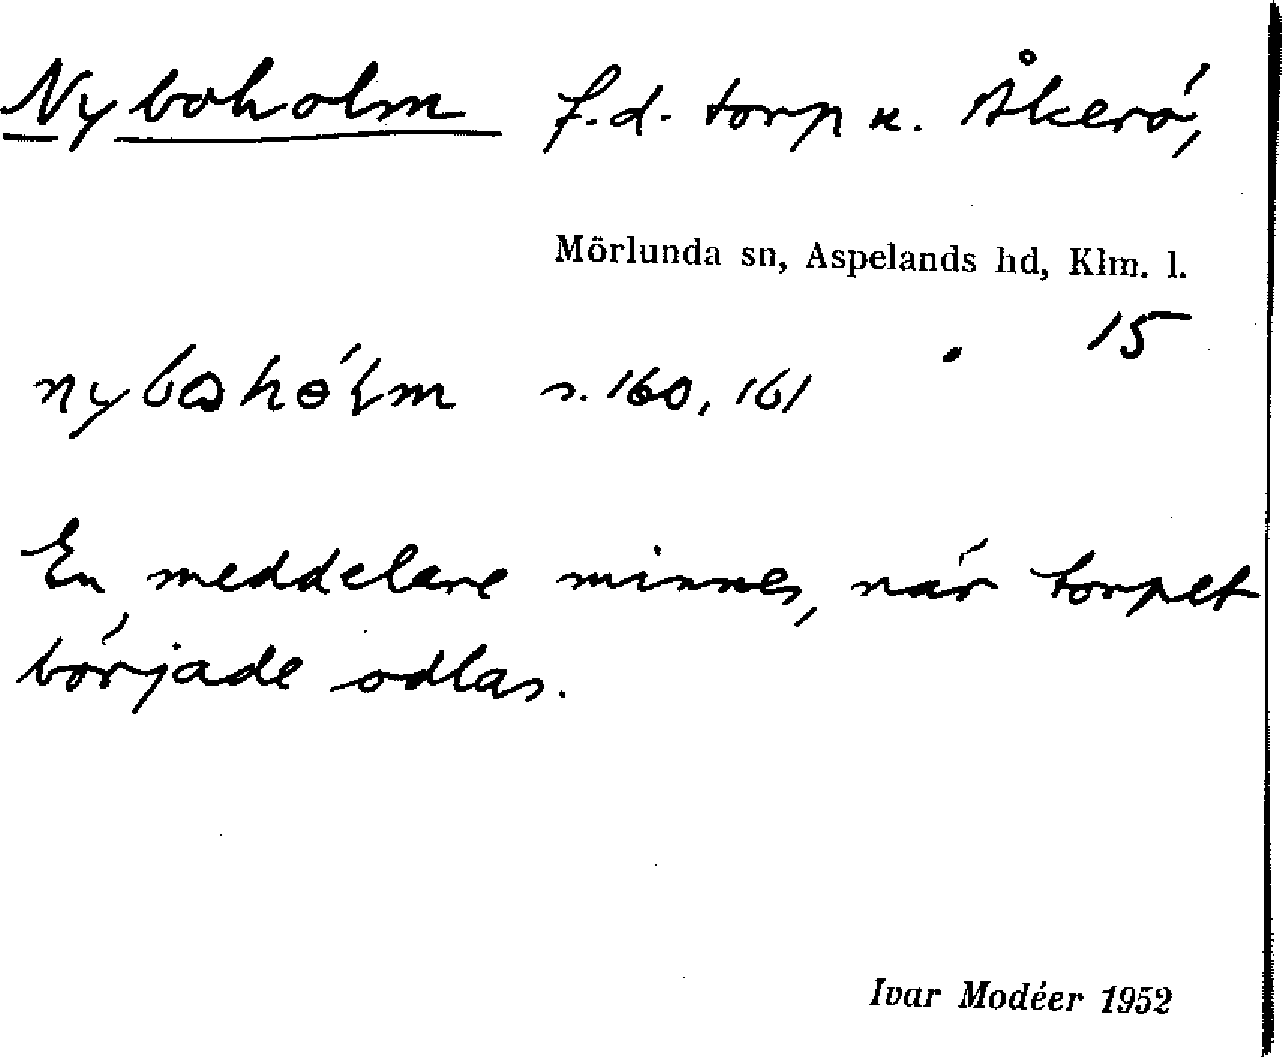 Nyboholm f.d. torp u. Åkerö,
Mörlunda sn, Aspelands hd, Klm. l.
15
s. 160, 161
En meddelare minnes, när torpet
började odlas.
Ivar Modéer 1952